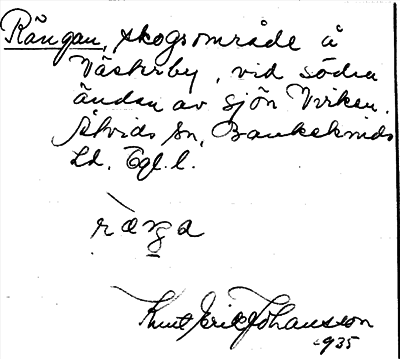 Rängan, skogsområde å
Västerby, vid södra
ändan av sjön Virken.
Åtvids sn, Bankekinds
hd, Ögl. l.
ræŋa
Knut Eric Johansson
1935